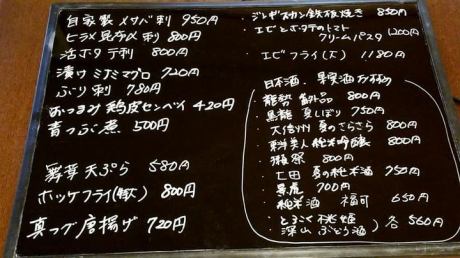 自家製 〆サバ刺 950円
ヒラメ昆布〆刺 800円
活ホタテ刺 800円
漬け ミナミマグロ 720円
ぶり刺 780円
おつまみ 鶏皮センベイ 420円
青つぶ煮 500円
舞茸 天ぷら 580円
ホッケフライ 800円
真つぶ唐揚げ 720円
ジンギスカン鉄板焼き 850円
エビとホタテのトマト
クリームパスタ 1200円
エビフライ(大) 1180円
日本酒、果実酒
・ 800円
・黒龍 夏しぼり 750円
・大信州 夏のさらさら 800円
・料美人 純米吟醸 800円
・獺祭 800円
・七田 夏の純米酒 750円
・ 700円
・純米酒 福司 650円
・とろこく桃姫
・深山 ぶどう酒 各560円